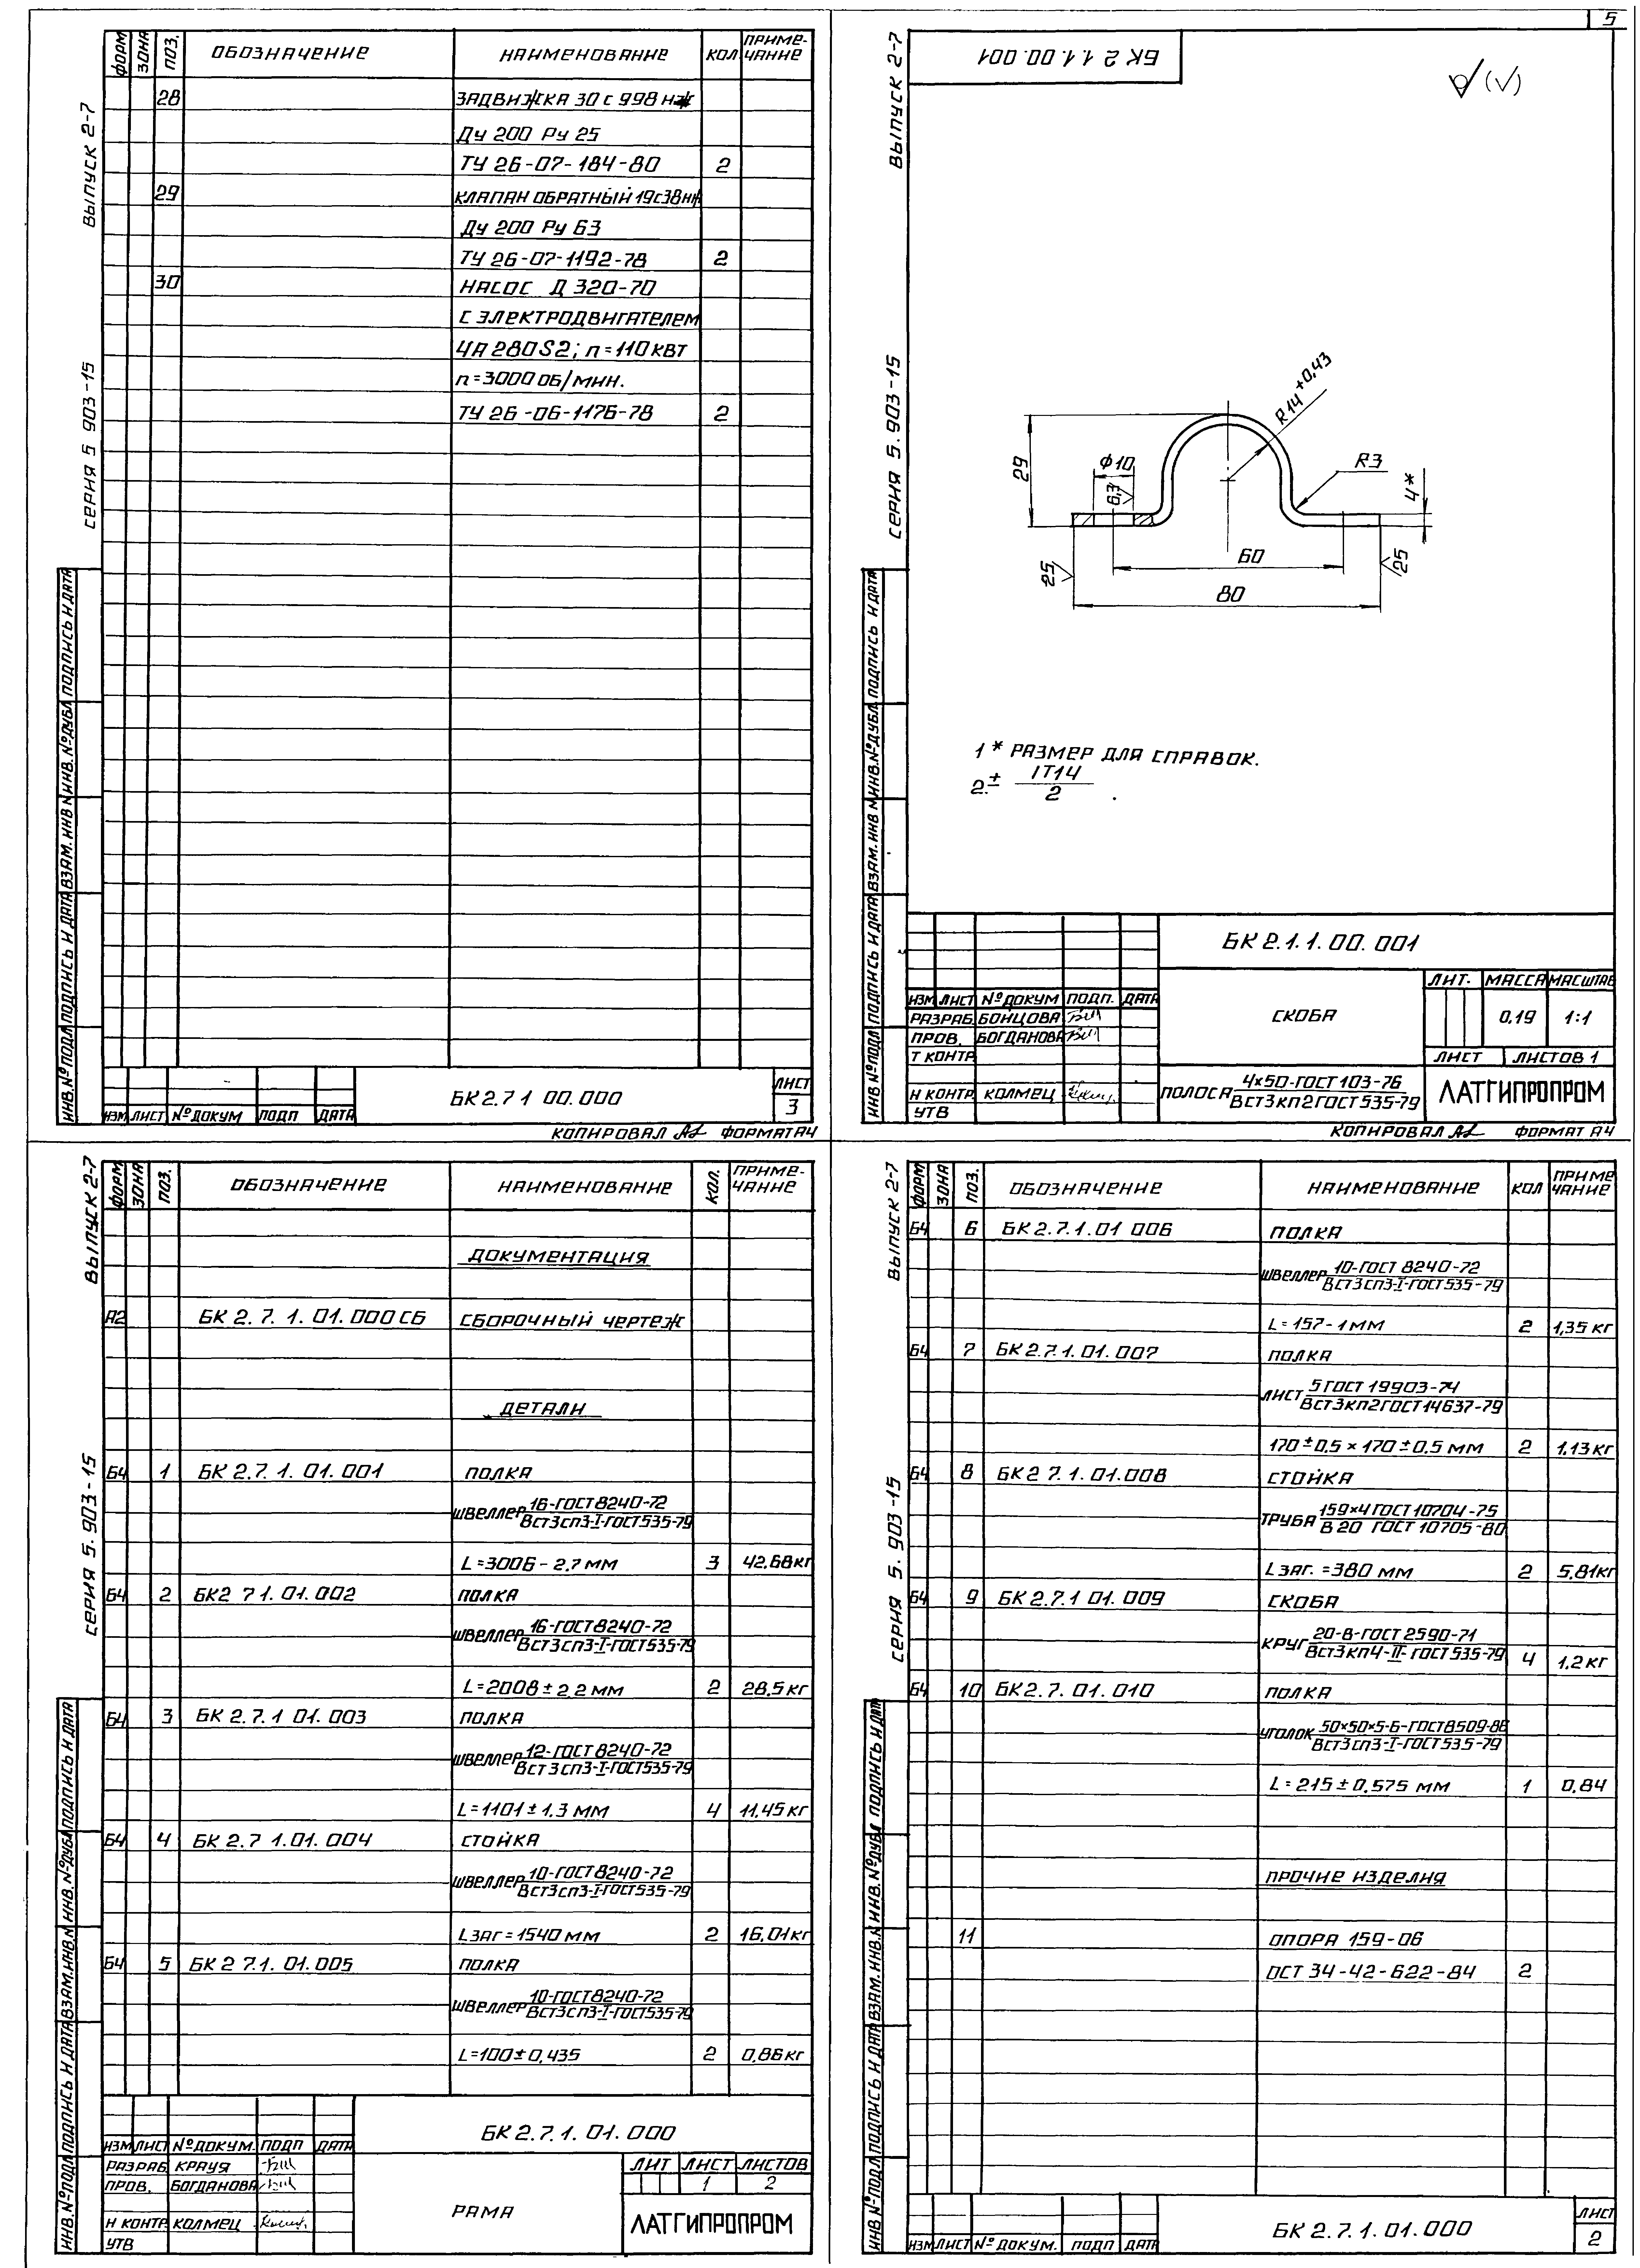 5
ВЫПУСК 2-7
СЕРИЯ 5 903-15
ФОРМ ЗОНА ПОЗ. ОБОЗНАЧЕНИЕ НАИМЕНОВАНИЕ КОЛ ПРИМЕ-ЧАНИЕ
28 ЗАДВИЖКА 30 с 998 нж
Ду 200 Ру 25
ТУ 26-07-184-80 2
29 КЛАПАН ОБРАТНЫЙ 19с38нж
Ду 200 Ру 63
ТУ 26-07-1192-78 2
30 НАСОС Д 320-70
С ЭЛЕКТРОДВИГАТЕЛЕМ
4А 280S2; n=110 КВТ
n=3000 ОБ/МИН.
ТУ 26-06-1176-78 2
ИНВ.№ПОДЛ ПОДПИСЬ И ДАТА ВЗАМ.ИНВ № ИНВ.№ДУБЛ ПОДПИСЬ И ДАТА
ИЗМ ЛИСТ №ДОКУМ ПОДП ДАТА
БК 2.7 1 00.000
ЛИСТ
3
КОПИРОВАЛ ФОРМАТ А4
ВЫПУСК 2-7
СЕРИЯ 5.903-15
БК 2 1 1.00.001
(√)
R14 +0,43
29
Ф10
6,3
R3
4*
60
25
25
80
1 * РАЗМЕР ДЛЯ СПРАВОК.
2. ± IT14
2
ИНВ №ПОДЛ ПОДПИСЬ И ДАТА ВЗАМ.ИНВ № ИНВ.№ДУБЛ. ПОДПИСЬ И ДАТА
БК 2.1.1.00.001
ИЗМ ЛИСТ №ДОКУМ ПОДП. ДАТА
РАЗРАБ. БОЙЦОВА
ПРОВ. БОГДАНОВА
Т КОНТР.
Н КОНТР. КОЛМЕЦ
УТВ
СКОБА
ЛИТ. МАССА МАСШТАБ
0,19 1:1
ЛИСТ ЛИСТОВ 1
ПОЛОСА 4×50-ГОСТ 103-76
ВСт3кп2 ГОСТ 535-79
ЛАТГИПРОПРОМ
КОПИРОВАЛ ФОРМАТ А4
ВЫПУСК 2-7
СЕРИЯ 5.903-15
ФОРМ ЗОНА ПОЗ. ОБОЗНАЧЕНИЕ НАИМЕНОВАНИЕ КОЛ. ПРИМЕ-ЧАНИЕ
ДОКУМЕНТАЦИЯ
А2 БК 2.7.1.01.000 СБ СБОРОЧНЫЙ ЧЕРТЕЖ
ДЕТАЛИ
Б4 1 БК 2.7.1.01.001 ПОЛКА
ШВЕЛЛЕР 16-ГОСТ 8240-72
ВСт3сп3-I-ГОСТ 535-79
L=3006-2.7 ММ 3 42.68 кг
Б4 2 БК2 7 1.01.002 ПОЛКА
ШВЕЛЛЕР 16-ГОСТ 8240-72
ВСт3сп3-I-ГОСТ 535-79
L=2008±2,2 ММ 2 28.5 кг
Б4 3 БК 2.7.1 01.003 ПОЛКА
ШВЕЛЛЕР 12-ГОСТ 8240-72
ВСт3сп3-I-ГОСТ 535-79
L=1101±1.3 ММ 4 11.45 кг
Б4 4 БК 2.7 1.01.004 СТОЙКА
ШВЕЛЛЕР 10-ГОСТ 8240-72
ВСт3сп3-I-ГОСТ 535-79
Lзаг=1540 ММ 2 16,01 кг
Б4 5 БК 2 7.1.01.005 ПОЛКА
ШВЕЛЛЕР 10-ГОСТ 8240-72
ВСт3сп3-I-ГОСТ 535-79
L=100±0,435 2 0,86 кг
ИНВ.№ПОДЛ ПОДПИСЬ И ДАТА ВЗАМ.ИНВ.№ ИНВ.№ДУБЛ ПОДПИСЬ И ДАТА
БК 2.7.1.01.000
ИЗМ ЛИСТ №ДОКУМ. ПОДП ДАТА
РАЗРАБ. КРАУЯ
ПРОВ. БОГДАНОВА
Н КОНТР. КОЛМЕЦ
УТВ
РАМА
ЛИТ ЛИСТ ЛИСТОВ
1 2
ЛАТГИПРОПРОМ
ВЫПУСК 2-7
СЕРИЯ 5.903-15
ФОРМ ЗОНА ПОЗ. ОБОЗНАЧЕНИЕ НАИМЕНОВАНИЕ КОЛ ПРИМЕ ЧАНИЕ
Б4 6 БК 2.7.1.01 006 ПОЛКА
ШВЕЛЛЕР 10-ГОСТ 8240-72
ВСт3сп3-I-ГОСТ 535-79
L=157-1 ММ 2 1,35 кг
Б4 7 БК 2.7.1.01.007 ПОЛКА
ЛИСТ 5 ГОСТ 19903-74
ВСт3кп2 ГОСТ 14637-79
170±0,5×170±0.5 ММ 2 1.13 кг
Б4 8 БК 2 7.1.01.008 СТОЙКА
ТРУБА 159×4 ГОСТ 10704-75
В 20 ГОСТ 10705-80
Lзаг.=380 ММ 2 5,81 кг
Б4 9 БК 2.7.1 01.009 СКОБА
КРУГ 20-В-ГОСТ 2590-71
ВСт3кп4-II-ГОСТ 535-79 4 1,2 кг
Б4 10 БК 2.7.01.010 ПОЛКА
УГОЛОК 50×50×5-Б-ГОСТ 8509-86
ВСт3сп3-I-ГОСТ 535-79
L=215±0,575 ММ 1 0,84
ПРОЧИЕ ИЗДЕЛИЯ
11 ОПОРА 159-06
ОСТ 34-42-622-84 2
ИНВ №ПОДЛ ПОДПИСЬ И ДАТА ВЗАМ.ИНВ.№ ИНВ.№ДУБЛ ПОДПИСЬ И ДАТА
ИЗМ ЛИСТ №ДОКУМ. ПОДП ДАТА
БК 2.7.1.01.000
ЛИСТ
2